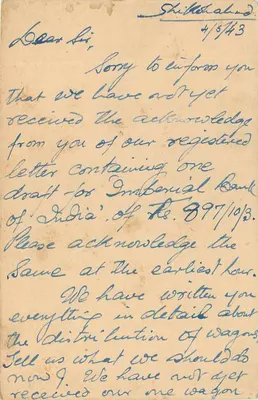 Shikohabad.
4/5/43
Dear Sir,
Sorry to inform you
that we have not yet
received the acknowledge
from you of our registered
letter containing one
draft on Imperial Bank
of 'India' of Rs. 897/10/3.
Please acknowledge the
same at the earliest hour.
We have written you
everything in details about
the distribution of wagons.
Tell us what we should do
now? We have not yet
received our one wagon